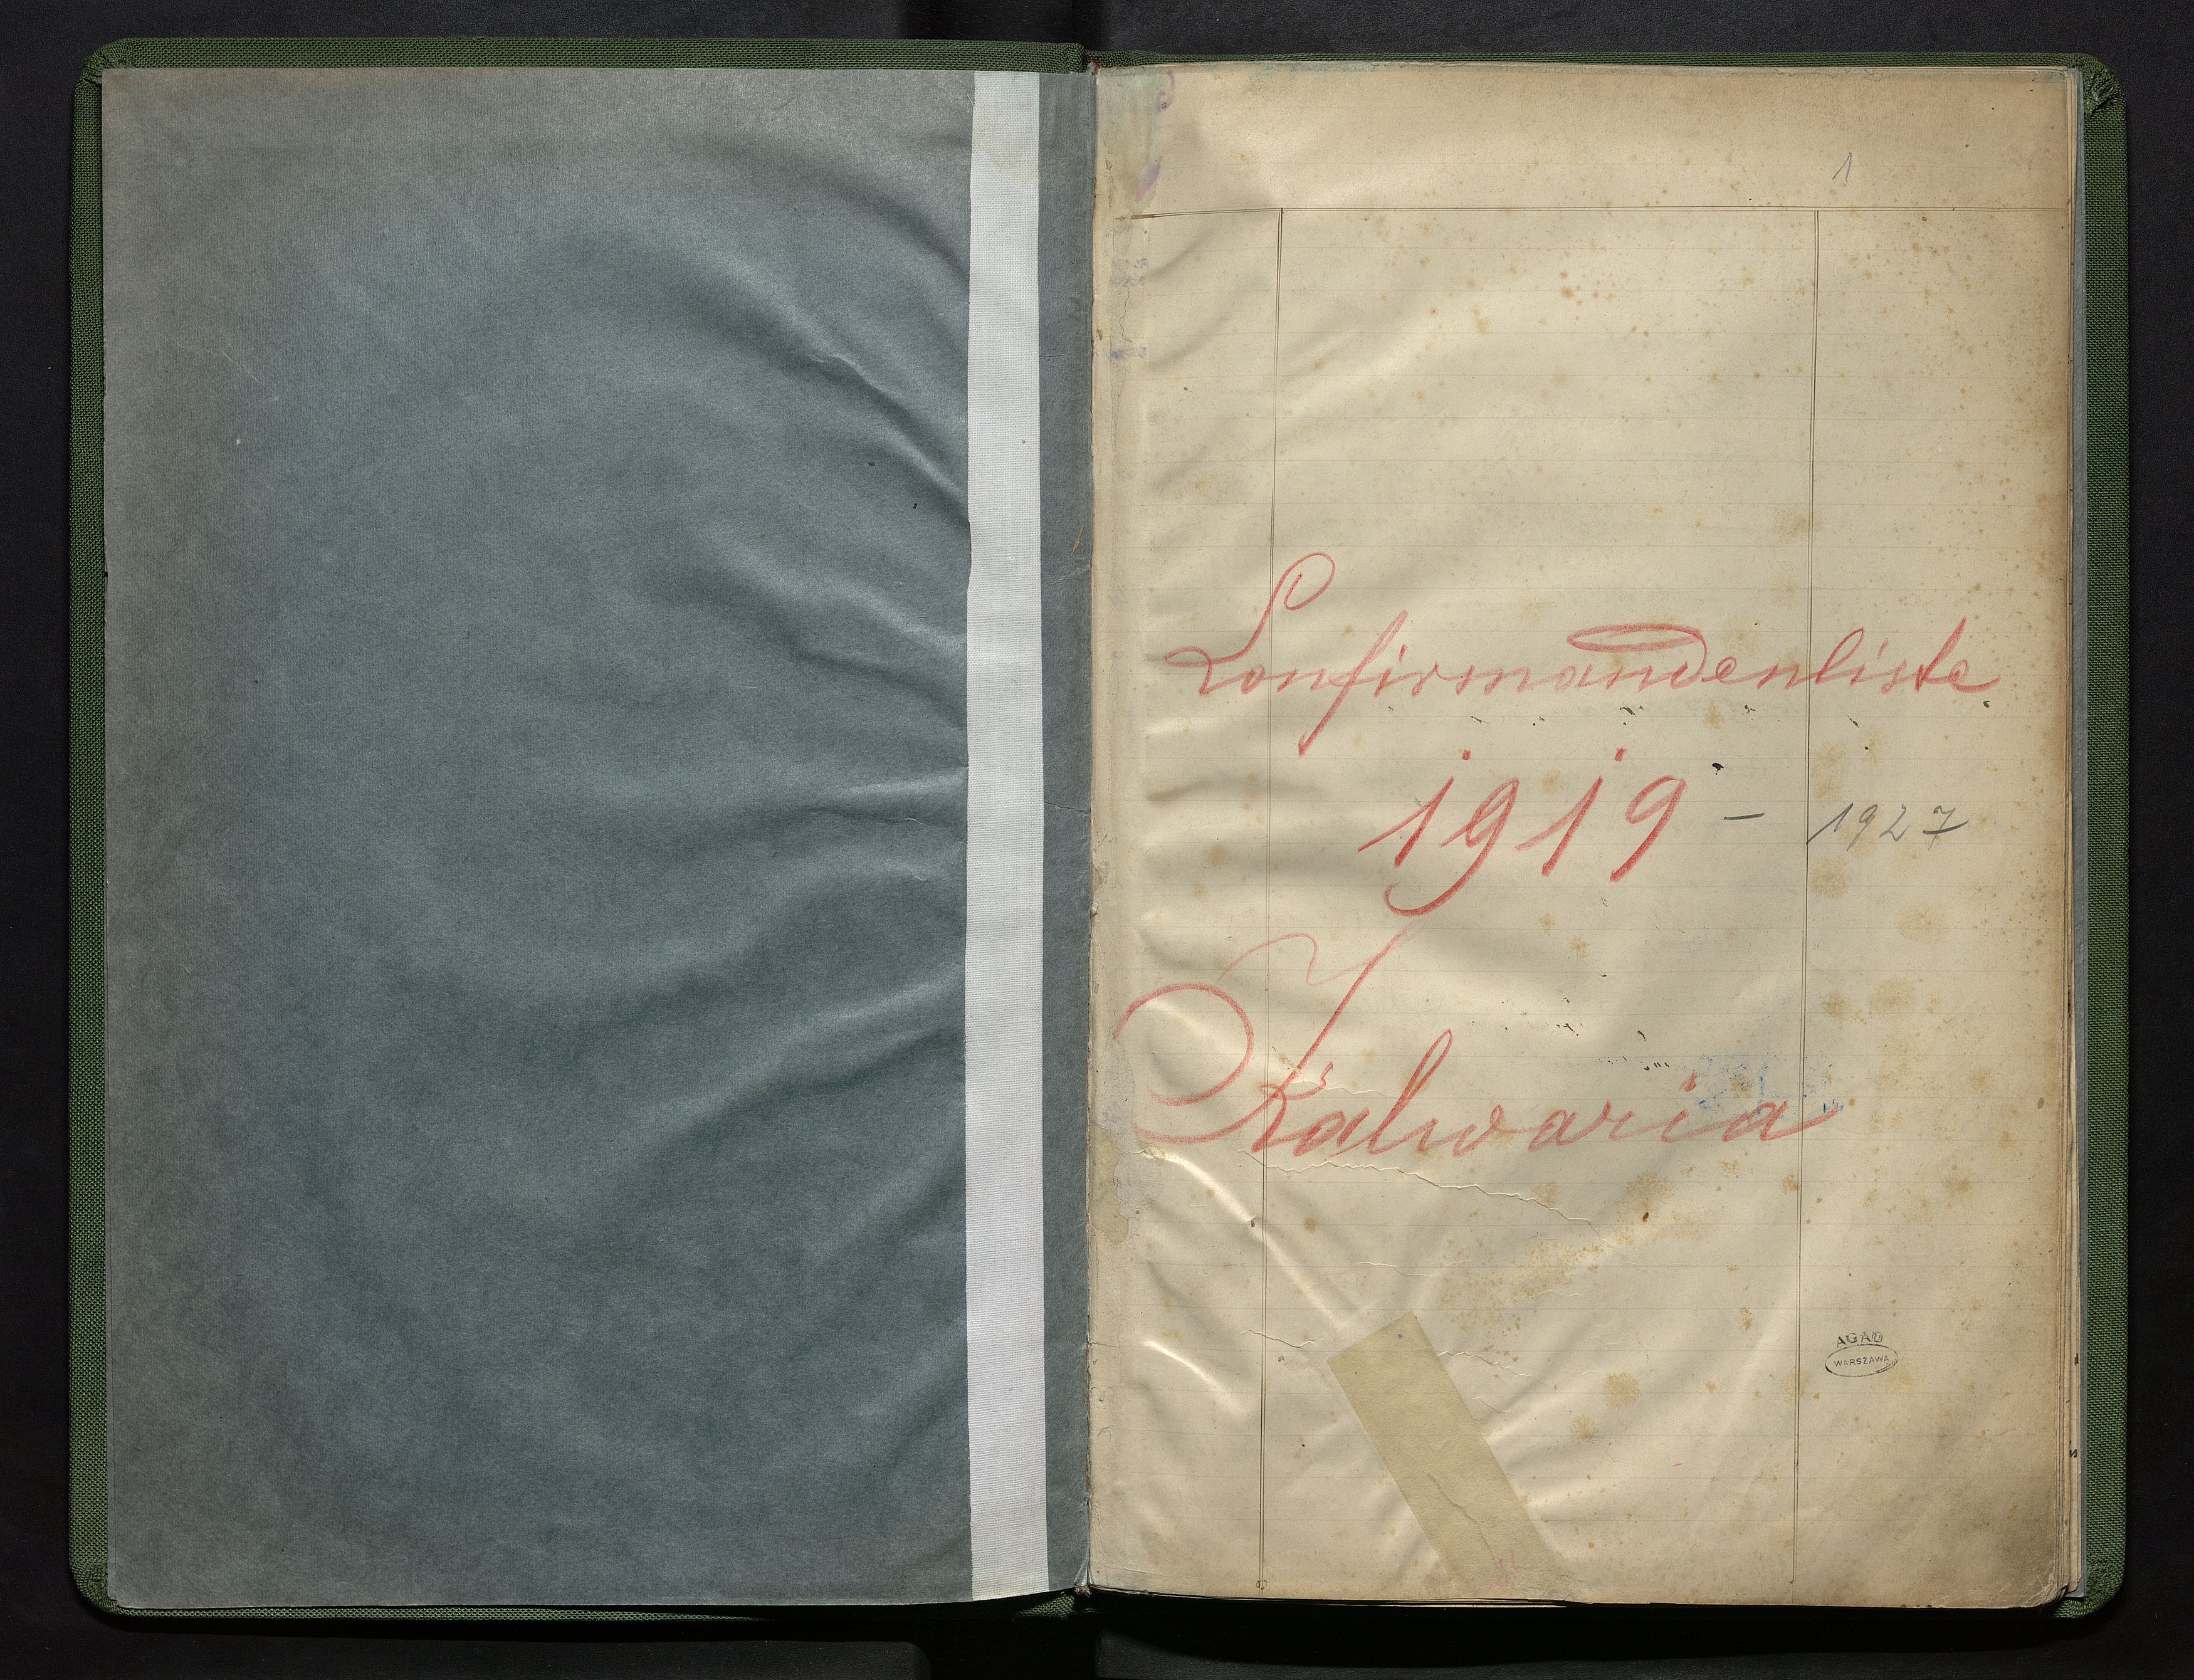 1
Confirmandenliste
1919 - 1927
Kalwaria
AGAD
WARSZAWA